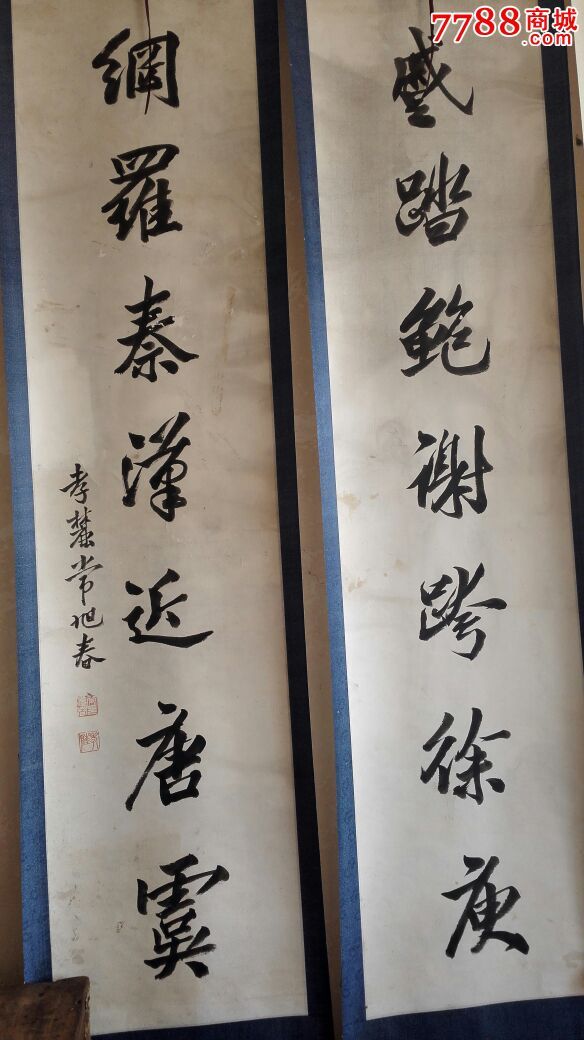 7788商城
.com
蹙踏鮑謝跨徐庾
網羅秦漢近唐虞
孝麓常旭春